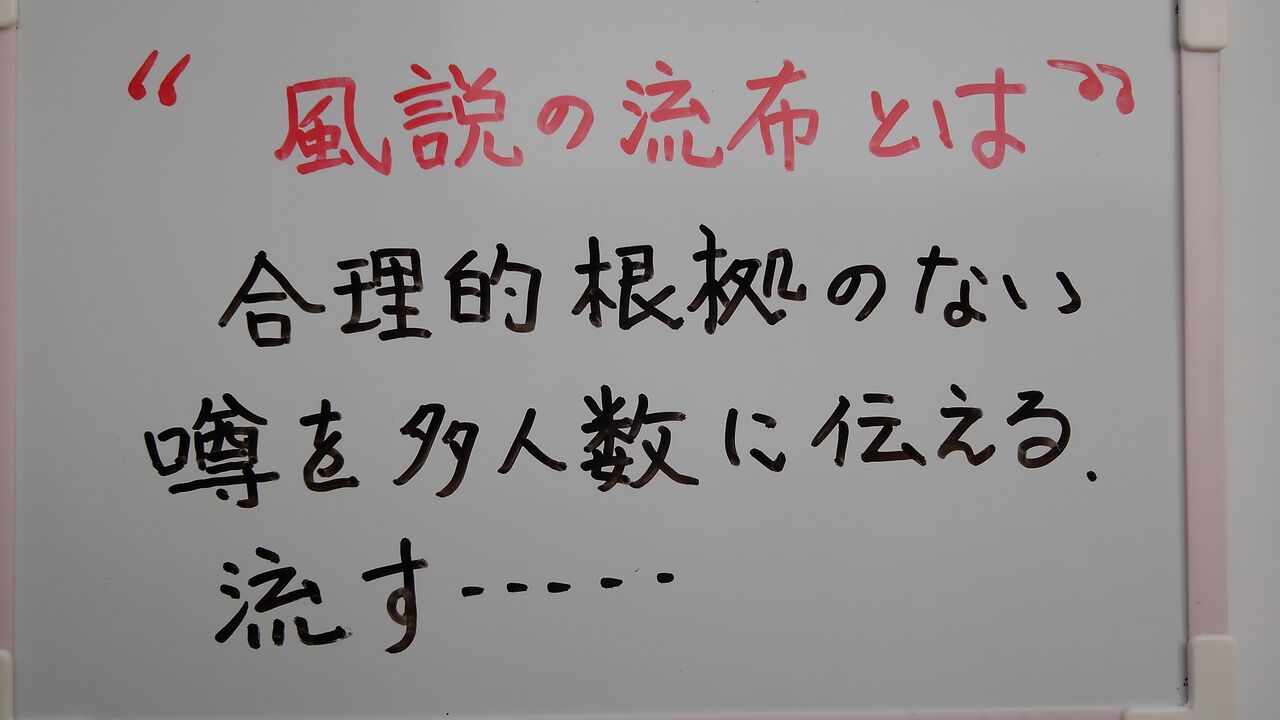 “ 風説の流布とは ”
合理的根拠のない
噂を多人数に伝える.
流す-----